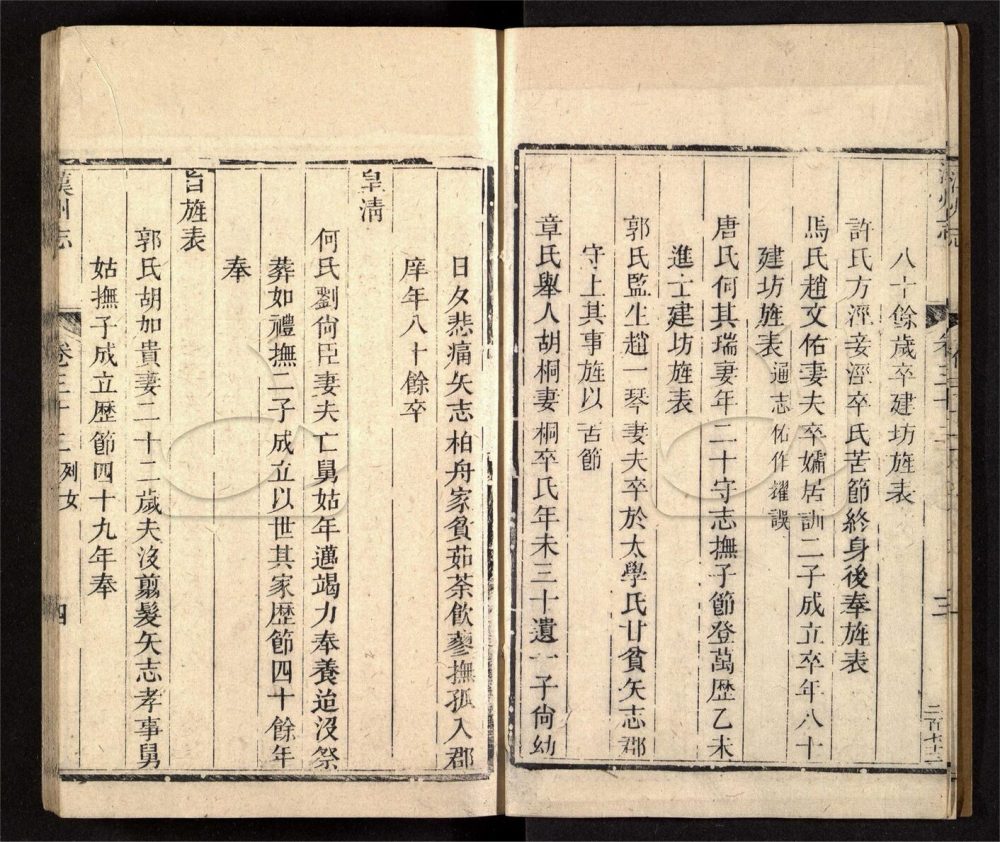 八十餘歲卒建坊旌表
許氏方涇妾涇卒氏苦節終身後奉旌表
馬氏趙文佑妻夫卒孀居訓二子成立卒年八十
建坊旌表通志佑作耀誤
唐氏何其瑞妻年二十守志撫子節登萬歷乙未
進士建坊旌表
郭氏監生趙一琴妻夫卒於太學氏甘貧矢志郡
守上其事旌以苦節
章氏舉人胡桐妻桐卒氏年未三十遺一子尙幼
二百七十二
日夕悲痛矢志柏舟家貧茹荼飲蓼撫孤入郡
庠年八十餘卒
皇清
何氏劉尙臣妻夫亡舅姑年邁竭力奉養迨沒祭
葬如禮撫二子成立以世其家歷節四十餘年
奉
旨旌表
郭氏胡如貴妻二十二歲夫沒翦髮矢志孝事舅
姑撫子成立歷節四十九年奉
漢州志 卷三十二 列女 四